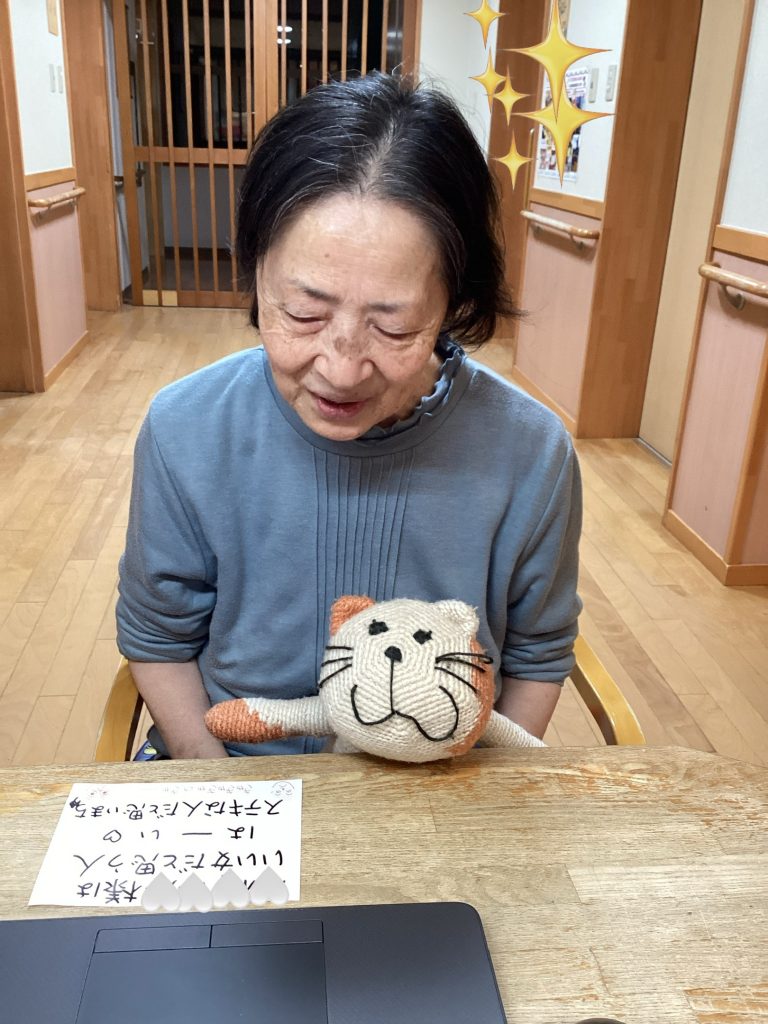 様は
いい女だと思う人
はーい♡
ステキな人だと思います